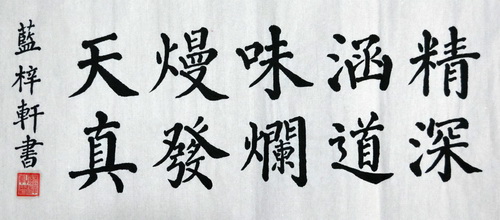 精深
涵道
味爛
熳發
天真
藍梓軒書